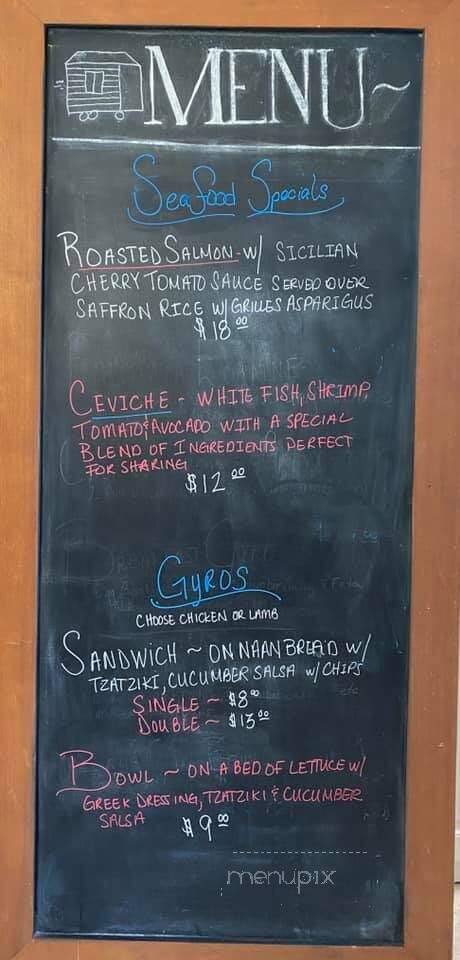 MENU~
Seafood Specials
ROASTED SALMON - W/ SICILIAN
CHERRY TOMATO SAUCE SERVED OVER
SAFFRON RICE W/ GRILLES ASPARIGUS
$18 00
CEVICHE - WHITE FISH, SHRIMP,
TOMATO & AVOCADO WITH A SPECIAL
BLEND OF INGREDIENTS PERFECT
FOR SHARING
$12 00
GYROS
CHOOSE CHICKEN OR LAMB
SANDWICH ~ ON NAAN BREAD W/
TZATZIKI, CUCUMBER SALSA W/ CHIPS
SINGLE ~ $8 00
DOUBLE ~ $13 00
BOWL ~ ON A BED OF LETTUCE W/
GREEK DRESSING, TZATZIKI & CUCUMBER
SALSA
$9 00
menupix